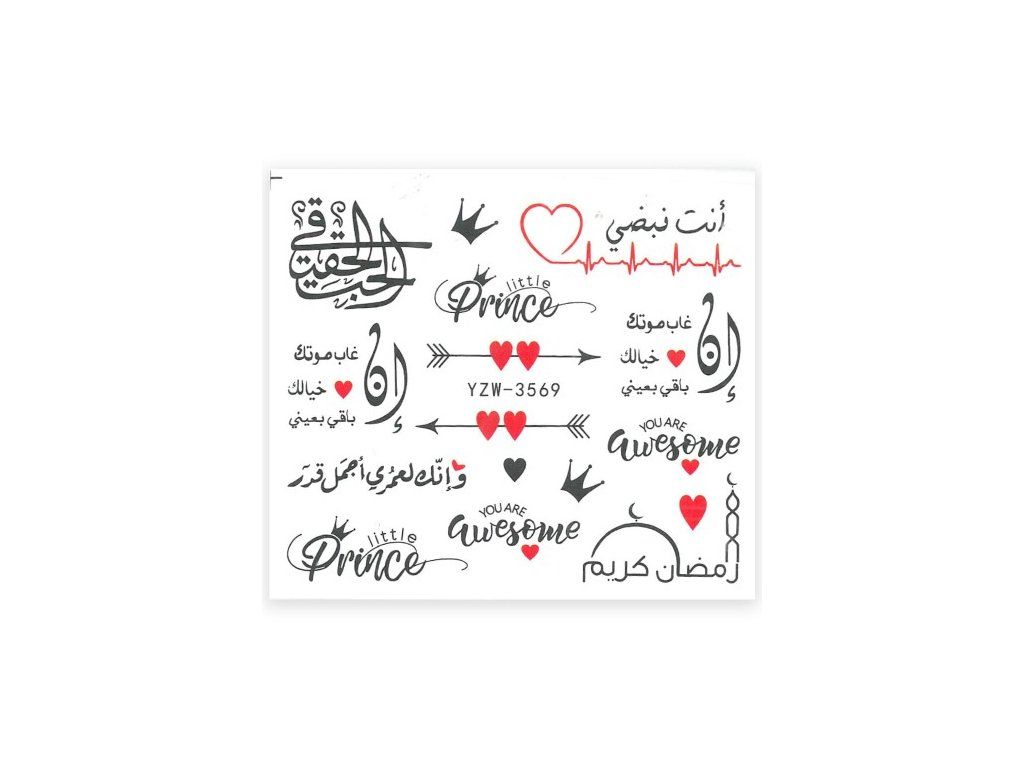 الحب الحقيقي
أنت نبضي
little
Prince
إن
غاب موتك
خيالك
باقي بعيني
إن
غاب موتك
خيالك
باقي بعيني
YZW-3569
YOU ARE
awesome
وإنّك لعمُري أجمَل قدَر
YOU ARE
awesome
little
Prince
رمضان كريم